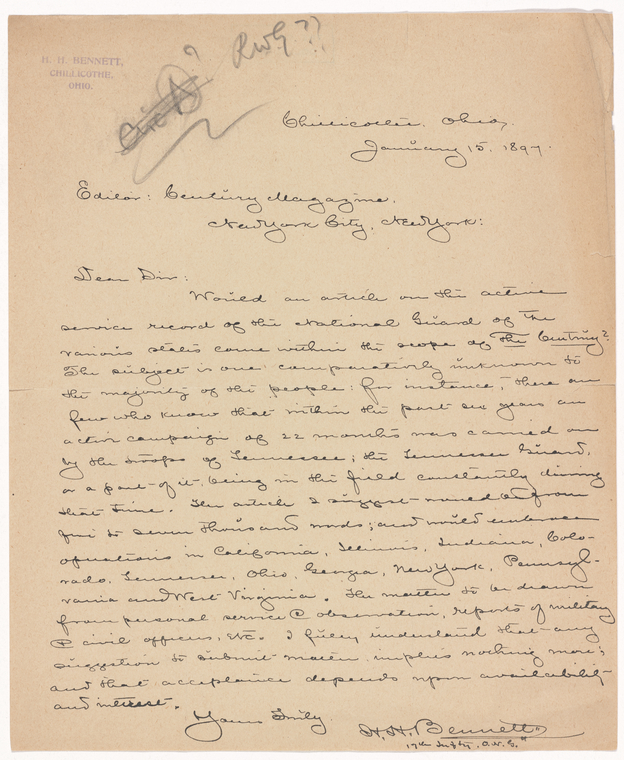 H. H. BENNETT,
CHILLICOTHE,
OHIO.
? RWG??
Chillicothe, Ohio,
January 15, 1897.
Editor: Century Magazine,
New York City, New York:
Dear Sir:
Would an article on the active
service record of the National Guard of the
various states come within the scope of The Century?
The subject is one comparatively unknown to
the majority of the people: for instance, there are
few who know that within the past six years an
active campaign of 22 months was carried on
by the troops of Tennessee; the Tennessee Guard,
or a part of it, being in the field constantly during
that time. The article I suggest would be from
five to seven thousand words; and would embrace
operations in California, Illinois, Indiana, Colo-
rado, Tennessee, Ohio, Georgia, New York, Pennsyl-
vania and West Virginia. The matter to be drawn
from personal service & observation, reports of military
& civil officers, etc. I fully understand that any
suggestion to submit matter implies nothing more;
and that acceptance depends upon availability
and interest.
Yours truly
H. H. Bennett
17th Infty, O.N.G.